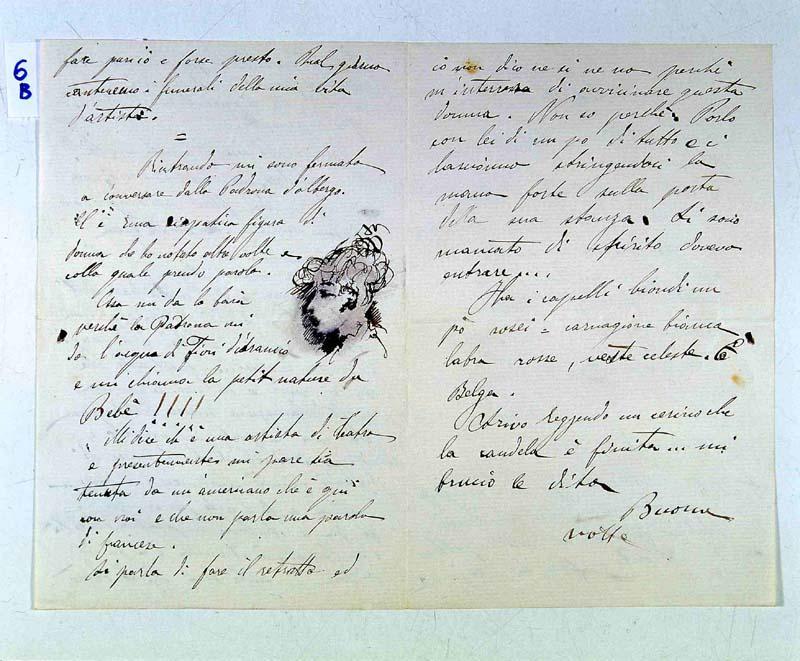 6
B
fare perciò e forse presto. Qual giorno
canteremo i funerali della mia vita
d'artista.
=
Rientrando mi sono fermato
a conversare dalla Padrona d'albergo.
C'è una simpatica figura di
donna che ho notato altre volte e
colla quale prendo parola.
Essa mi da la baia
perchè la Padrona mi
da l'acqua di Fiori d'arancio
e mi chiama la petit nature du
Bebè !!!!
Mi dice ch'è una artista di teatro
e presentemente mi pare sia
tenuta da un americano che è qui
con noi e che non parla una parola
di francese.
Mi parla di fare il retratto ed
io non dico ne si ne no perchè
m'interessa di avvicinare questa
donna. Non so perchè. Parlo
con lei di un po di tutto e ci
lasciamo stringendoci la
mano forte sulla porta
della sua stanza. Li sono
mancato di spirito dovevo
entrare....
Ha i capelli biondi un
pò rosei = carnagione bianca
labra rosse, veste celeste. È
Belga.
Scrivo reggendo un cerino che
la candela è finita... mi
brucio le dita
Buona
notte